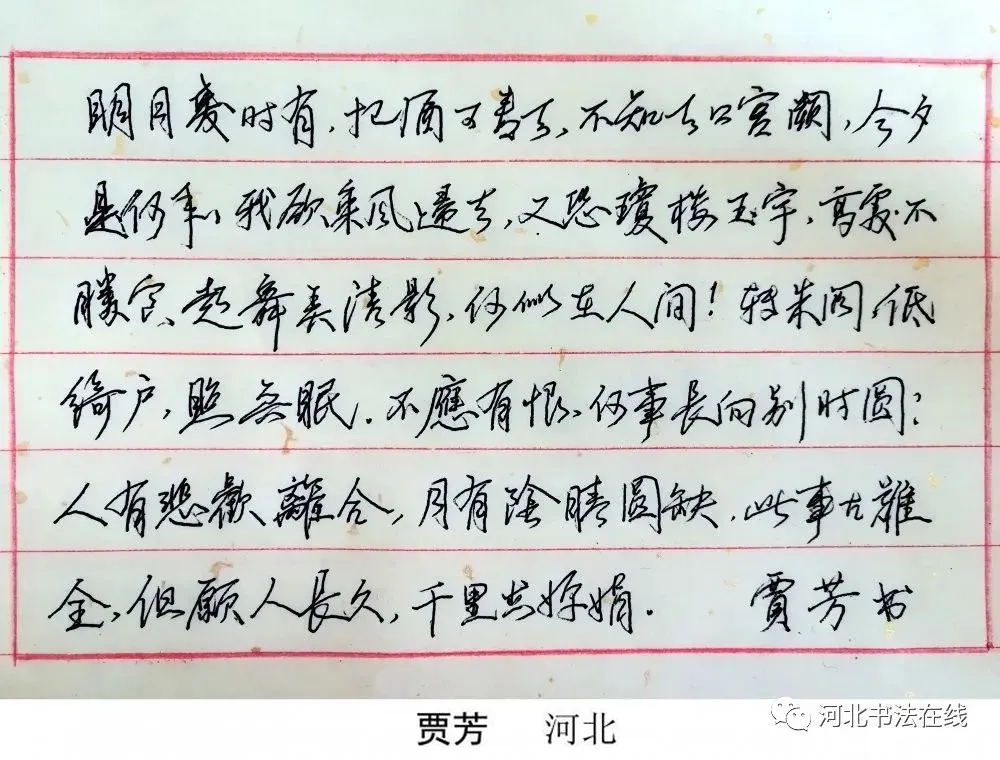 明月幾时有，把酒问青天，不知天上宫阙，今夕
是何年，我欲乘风归去，又恐瓊楼玉宇，高處不
勝寒，起舞弄清影，何似在人间！转朱阁，低
绮户，照无眠．不應有恨，何事長向别时圆？
人有悲歡離合，月有陰晴圆缺，此事古難
全，但願人長久，千里共婵娟． 賈芳书
贾芳 河北
河北书法在线